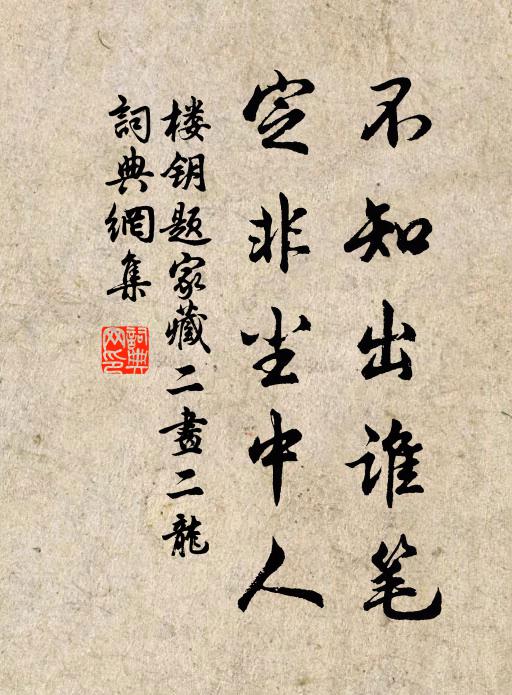 不知出谁笔
定非尘中人
楼钥题家藏二画二龙
词典网集
詞典网印